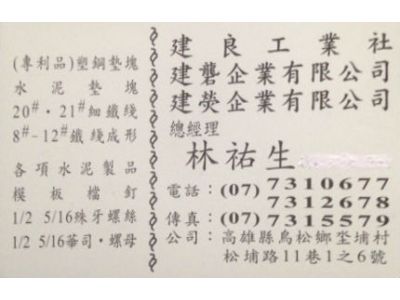 (專利品)塑鋼墊塊
水泥墊塊
20#・21#細鐵綫
8#-12#鐵綫成形
各項水泥製品
模板檔釘
1/2 5/16殊牙螺絲
1/2 5/16華司・螺母
建良工業社
建礱企業有限公司
建熒企業有限公司
總經理
林祐生
電話：(07)7310677
7312678
傳真：(07)7315579
公司：高雄縣鳥松鄉坔埔村
松埔路11巷1之6號